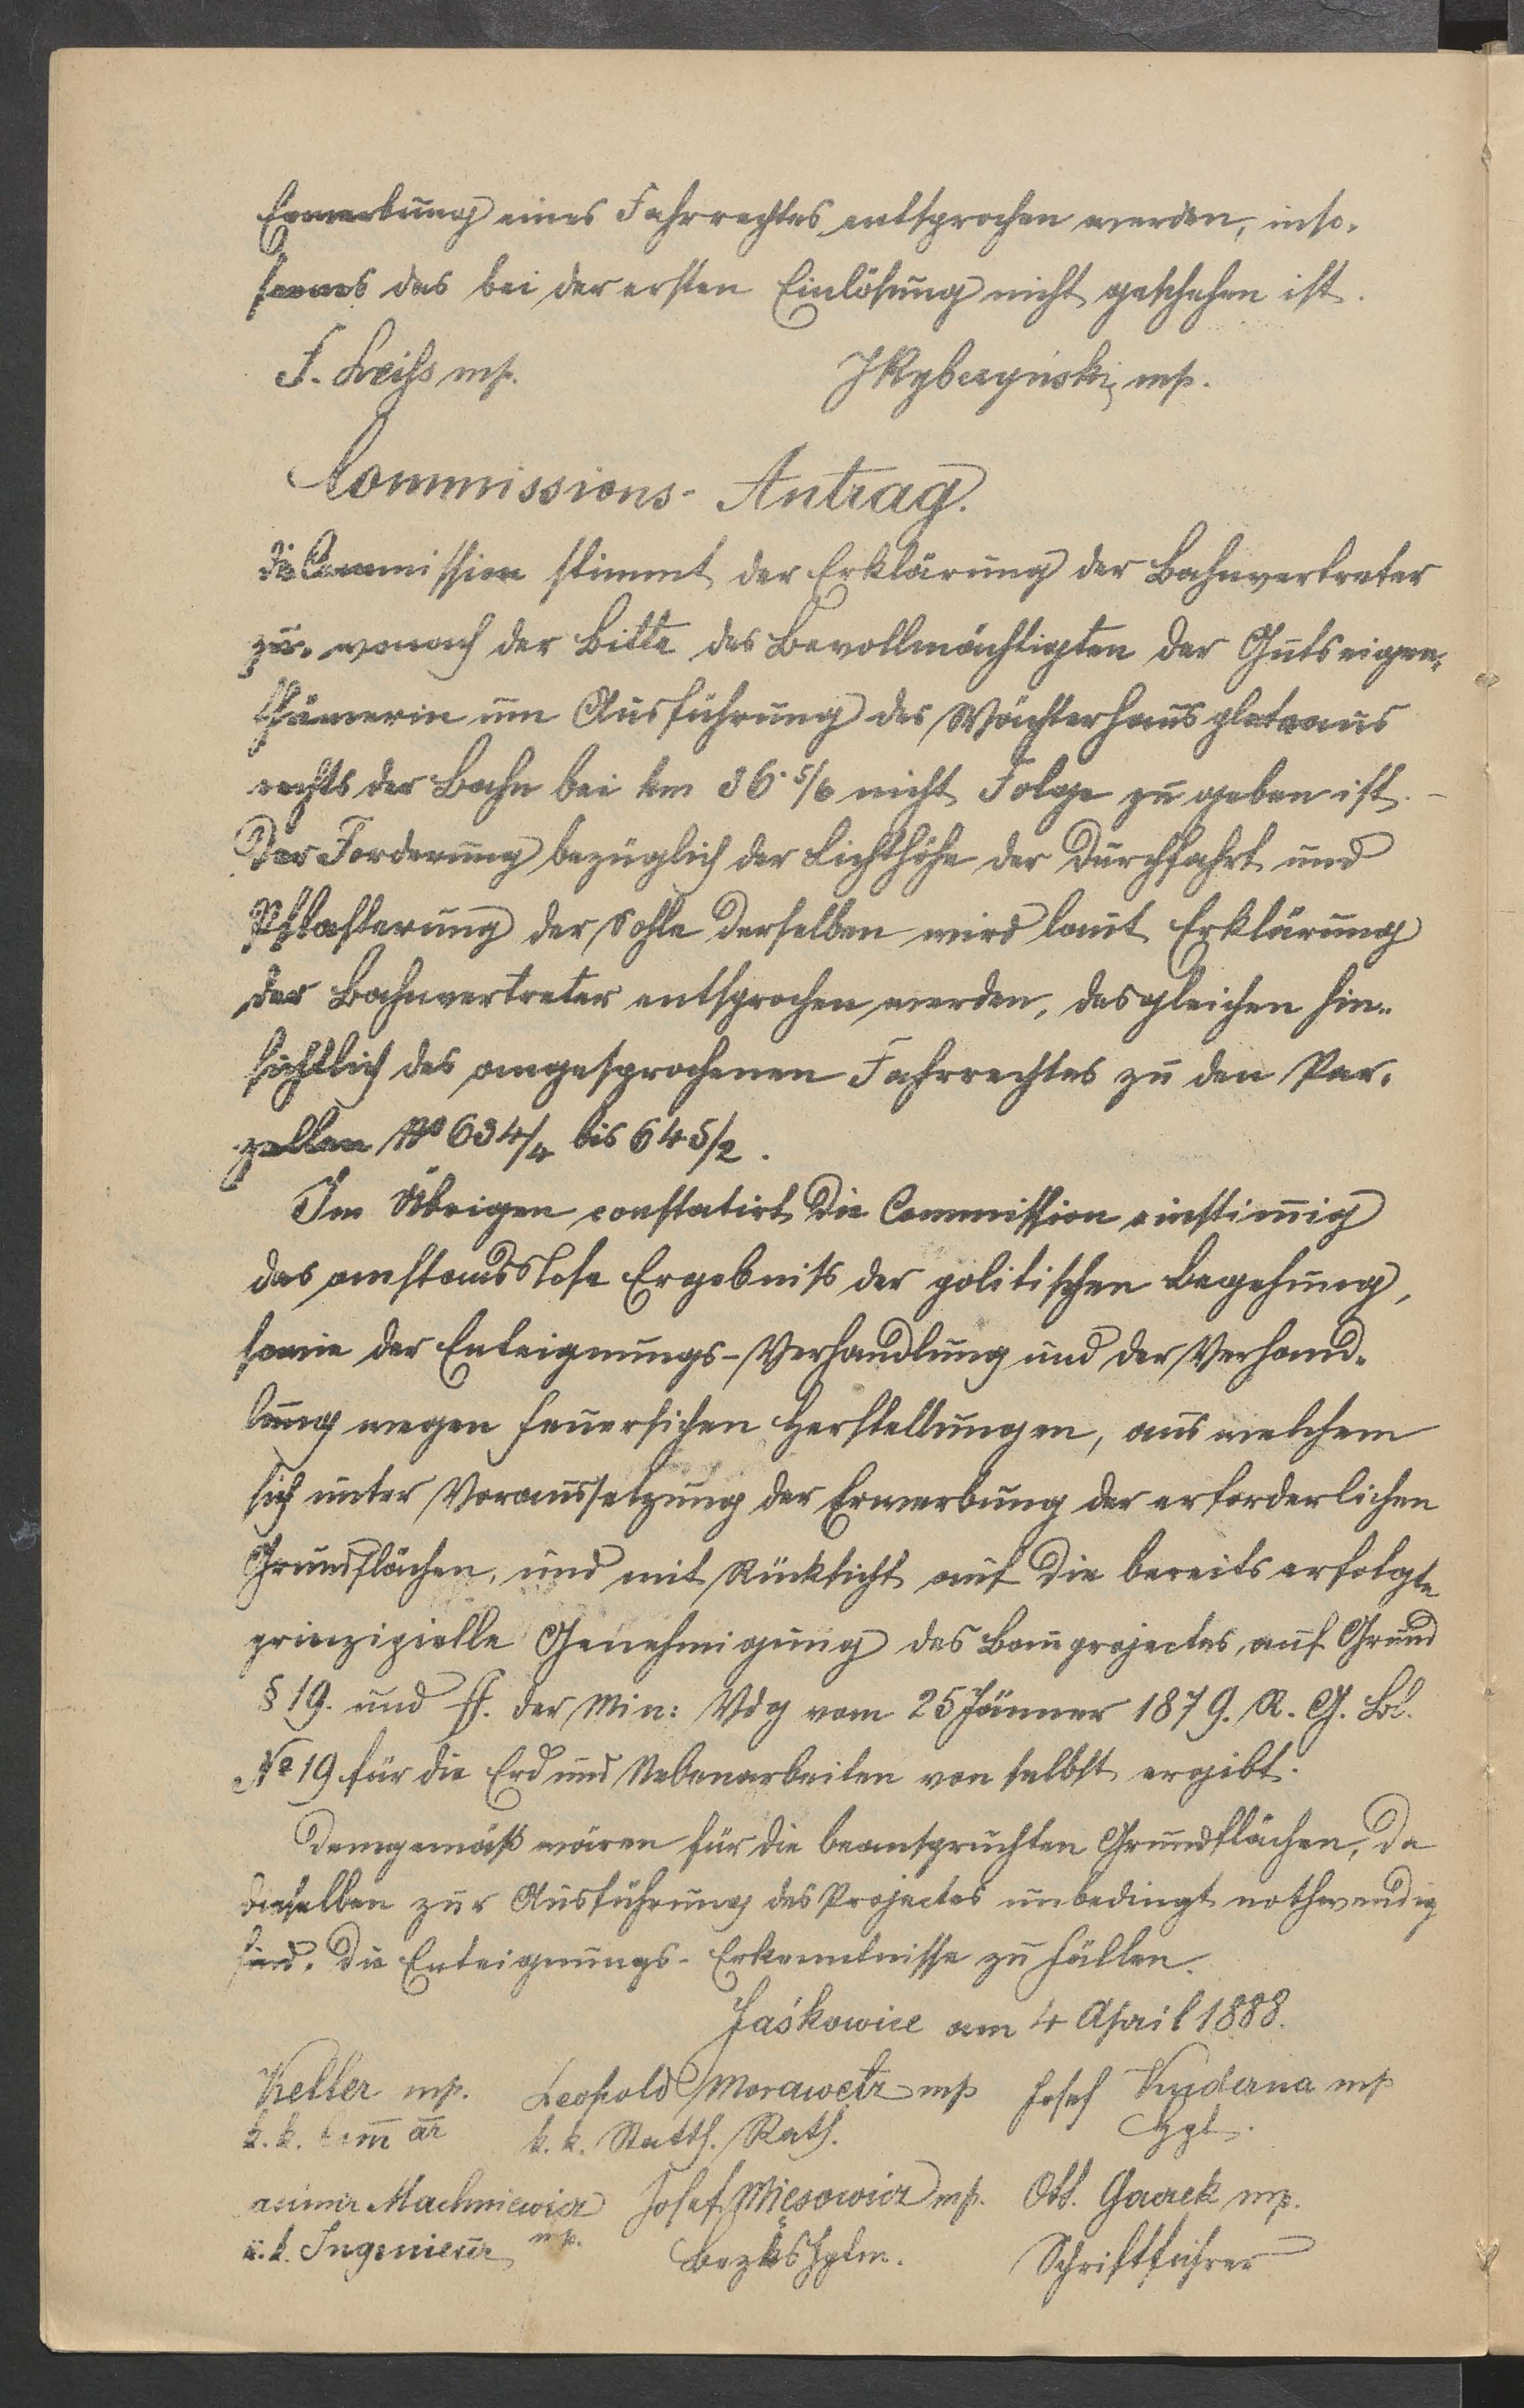 Erwerbung eines Fahrrechtes entsprochen werden, inso-
ferns das bei der ersten Einlösung nicht geschehen ist.
F. Leihs mp. JRybczyński mp.
Commissions-Antrag.
Die Commission stimmt der Erklärung der Bahnvertreter
zu, wonach der Bitte des Bevollmächtigten der Gutseigen-
thümerin um Ausführung des Wächterhausplateaus
rechts der Bahn bei km 36·5/6 nicht Folge zu geben ist. –
Der Forderung bezüglich der Lichthöhe der Durchfahrt und
Pflasterung der Sohle derselben wird laut Erklärung
der Bahnvertreter entsprochen werden, desgleichen hin-
sichtlich des angesprochenen Fahrrechtes zu den Par-
zellen No 634/4 bis 645/2.
Im Übrigen constatirt die Commission einstimmig
das anstandslose Ergebniß der politischen Begehung,
sowie der Enteignungs-Verhandlung und der Verhand-
lung wegen feuersichen Herstellungen, aus welchem
sich unter Voraussetzung der Erwerbung der erforderlichen
Grundflächen, und mit Rücksicht auf die bereits erfolgte
prinzipielle Genehmigung des Bauprojectes, auf Grund
§ 19. und ff. der Min: Vdg vom 25 Jänner 1879. R. G. Bl.
No 19 für die Erd und Nebenarbeiten von selbst ergibt.
Demgemäß wären für die beanspruchten Grundflächen, da
dieselben zur Ausführung des Projectes unbedingt nothwendig
sind, die Enteignungs-Erkenntnisse zu fällen.
Jaśkowice am 4 April 1888.
Keller mp. Leopold Morawetz mp Josef Kuderna mp
k. k. Com̄är k. k. Statth. Rath. Hgl.
asimir Machniewicz Josef Mięsowicz mp. Ott. Gavrek mp.
k. k. Ingenieur mp. BezksHptm. Schriftführer